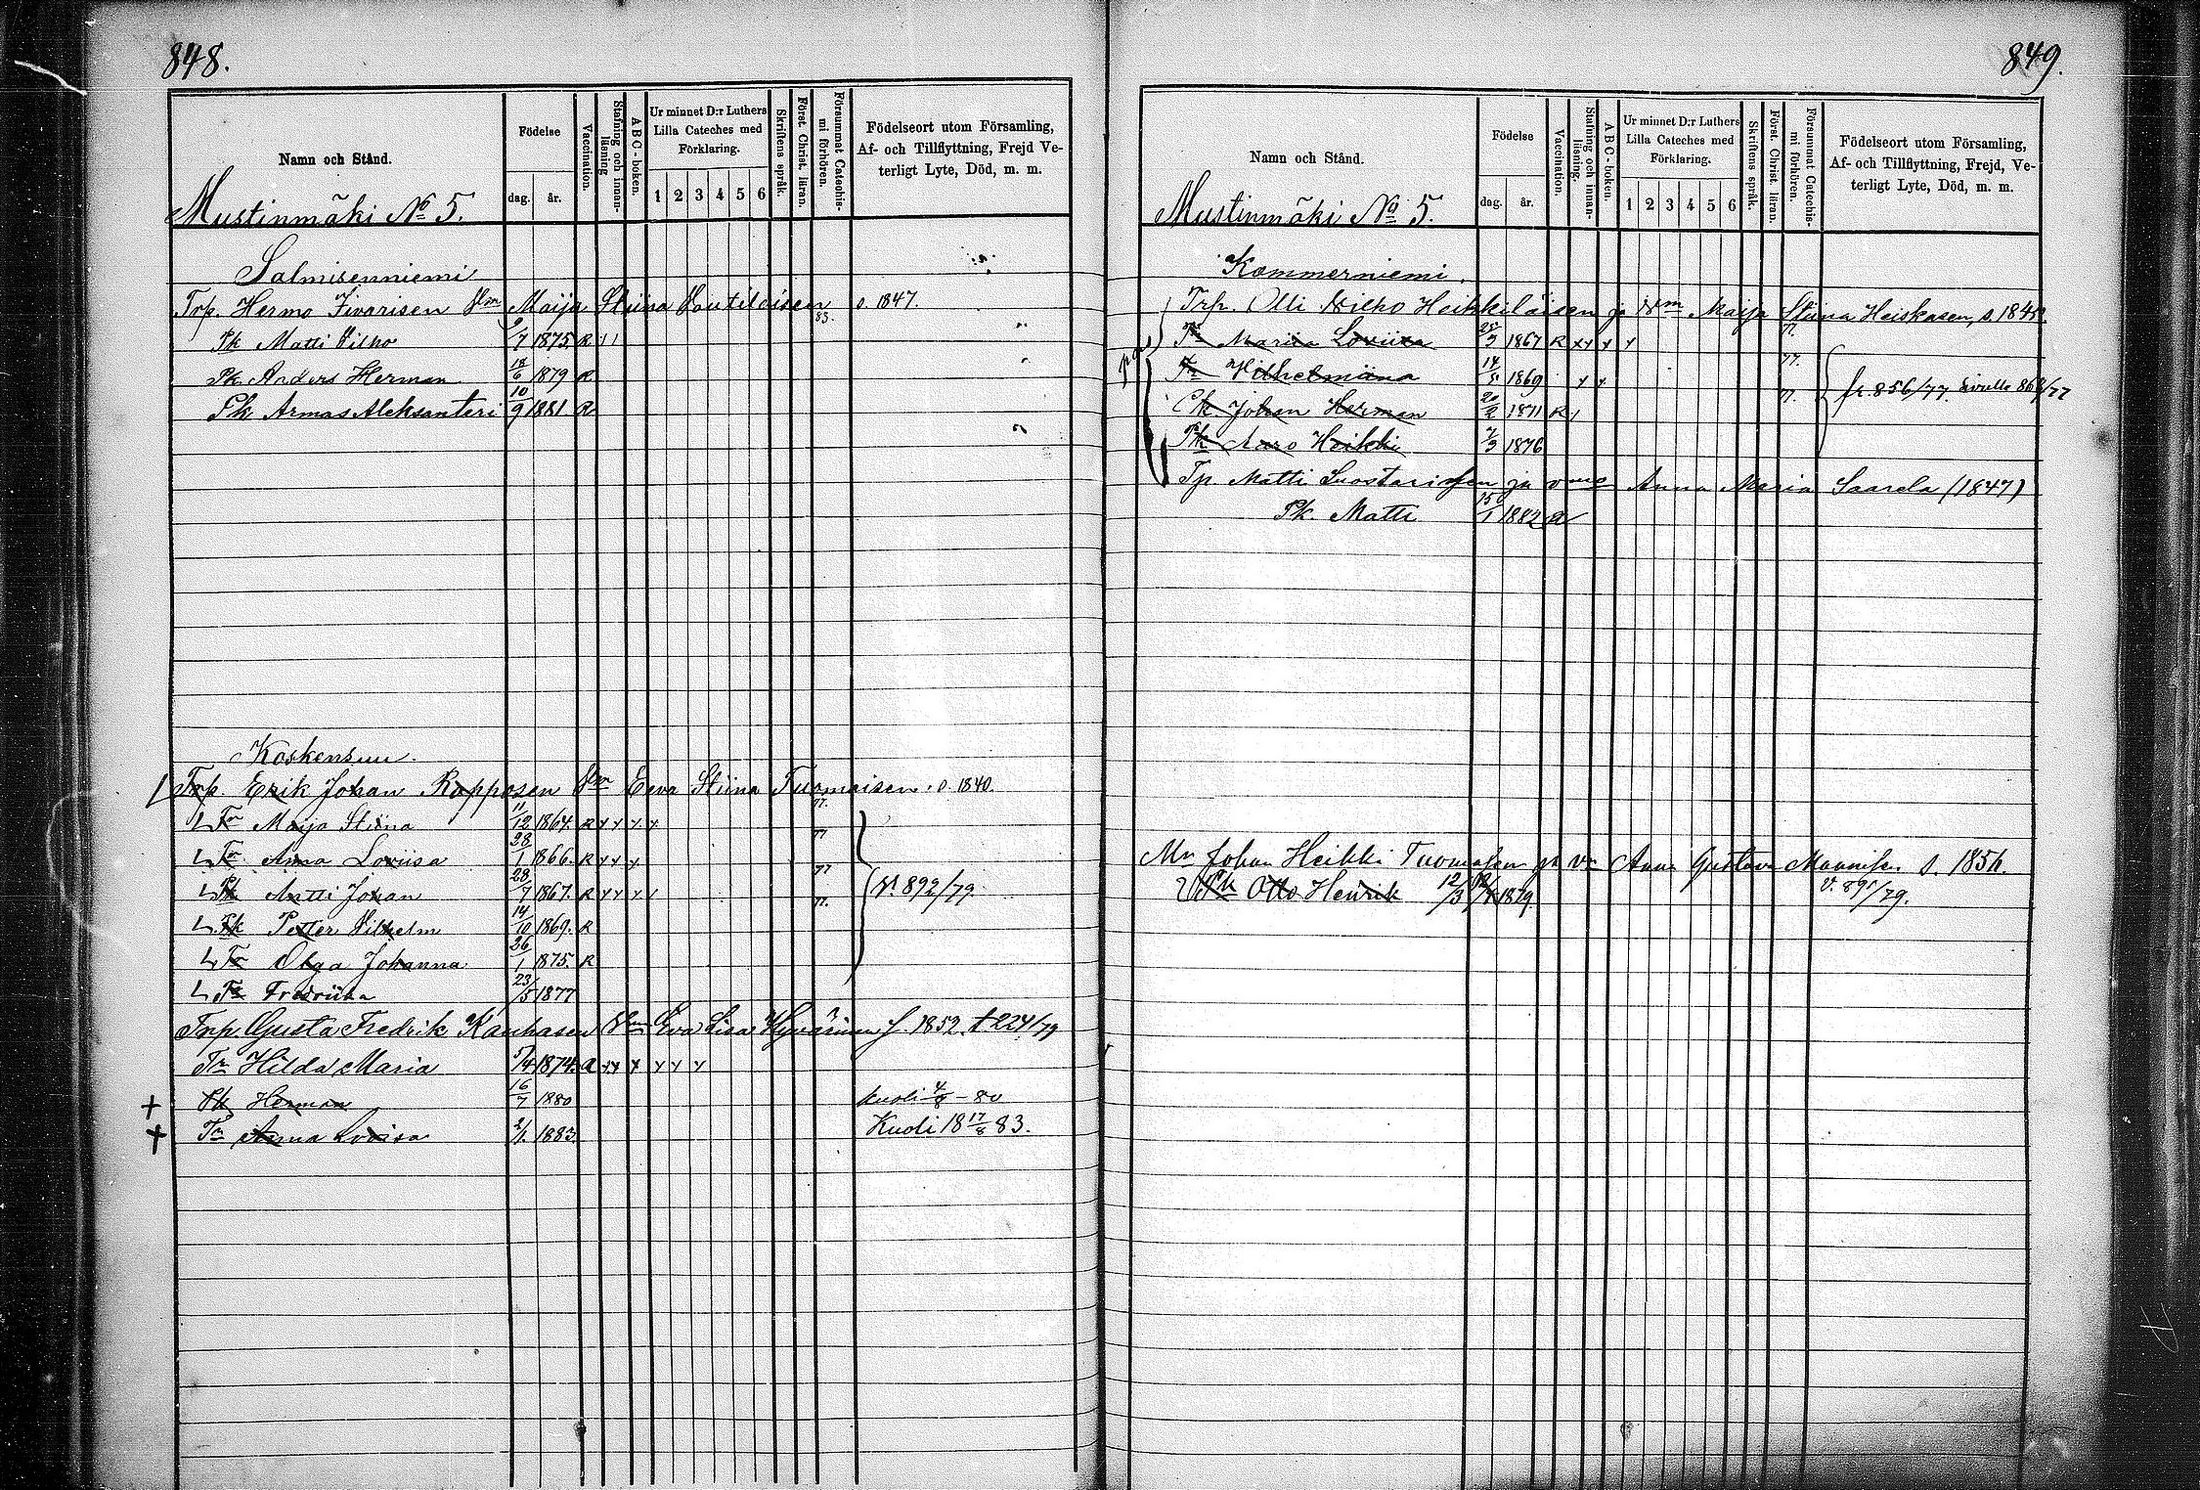 848.
Namn och Stånd.
Födelse
dag. år.
Vaccination.
Stafning och innanläsning
ABC-boken.
Ur minnet D:r Luthers Lilla Cateches med Förklaring.
1 2 3 4 5 6
Skriftens språk.
Först. Christ. läran.
Försummat Catechismi förhören.
Födelseort utom Församling,
Af- och Tillflyttning, Frejd Ve-
terligt Lyte, Död, m. m.
Mustinmäki No 5.
Salmisenniemi
Trp. Hermo Iivarisen Vm Maija Stiina Vautilaisen s. 1847.
83.
Pk Matti Vilho /7 1875. R
Pk Anders Herman 18/6 1879 R
Pk Armas Aleksanteri 10/9 1881 R
Koskensuu.
Trp. Erik Johan Rapposen Vm Eeva Stiina Tuomaisen. s. 1840.
Tr Maija Stiina 11/12 1864. R x x x x 77.
Tr Anna Loviisa 28/1 1866. R x x x 77
Pk Antti Johan 28/7 1867. R x x x 77 V. 892/79.
Pk Petter Vilhelm 14/10 1869. R 77.
Tr Olga Johanna 26/1 1875. R
Tr Fredriika 23/5 1877
Trp. Gusta Fredrik Kauhasen Vm Eva Lisa Hyvärinen f. 1852. t 224/79
Tr Hilda Maria 5/4 1874. a x x x x x x
+ Pk Herman 16/7 1880 kuoli 4/8 - 80
+ Tr Anna Loviisa 2/1. 1883. Kuoli 18 17/8 83.
849.
Namn och Stånd.
Födelse
dag. år.
Vaccination.
Stafning och innanläsning.
ABC-boken.
Ur minnet D:r Luthers Lilla Cateches med Förklaring.
1 2 3 4 5 6
Skriftens språk.
Först. Christ. läran.
Försummat Catechismi förhören.
Födelseort utom Församling,
Af- och Tillflyttning, Frejd, Ve-
terligt Lyte, Död, m. m.
Mustinmäki No 5.
Kommerniemi.
Trp. Olli Vilho Heikkiläisen ja Vm Maija Stiina Heiskasen, s. 184
Tr Maria Loviisa 1867 R x x x x 77.
Tr Vilhelmiina 14/ 1869 x x 77.
Pk Johan Herman 20/2 1871 R 77. fr. 856/77. sivulle
Pk Aaro Heikki 7/3 1876
Tp. Matti Luostarisen ja vmo Anna Maria Saarela (1847)
Pk. Matti 15/1 1882 a
Mn Johan Heikki Tuomasen ja vm Anna Gustava s. 185
Pk Otto Henrik 12/3 1879. /79.